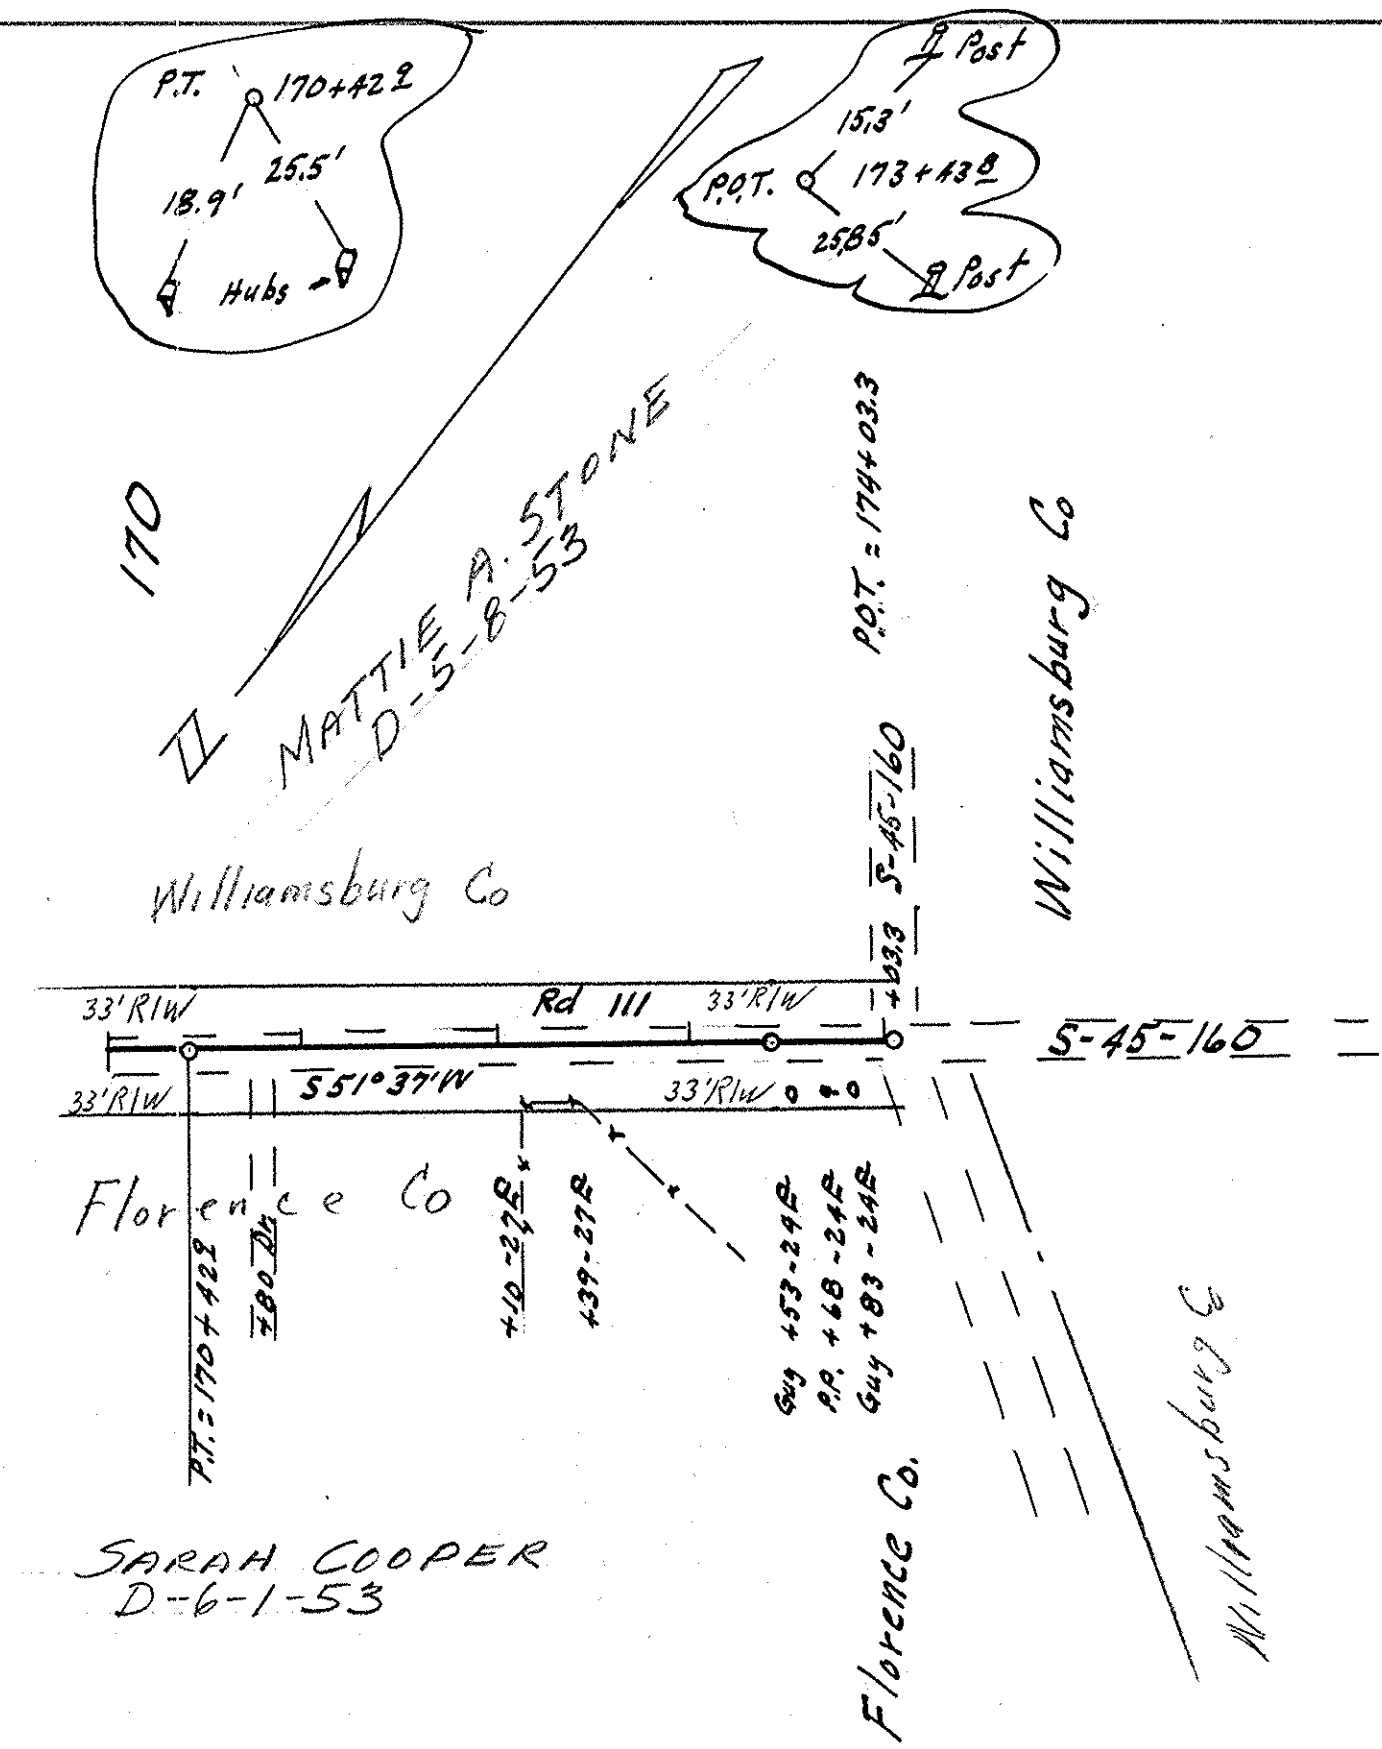 P.T. 170+42 9
18.9' 25.5'
Hubs
Post
15.3'
P.O.T. 173+43 8
25.85'
Post
170
MATTIE A. STONE
D-5-8-53
P.O.T. = 174+03.3
Williamsburg Co
S-45-160
+03.3
Williamsburg Co
33'R/W
Rd 111
33'R/W
S-45-160
S 51° 37' W
33'R/W
33'R/W
Florence Co
P.T. = 170+42 9
+80 Dr.
+10 -27R
+39-27R
Guy +53-24R
P.P. +68-24R
Guy +83-24R
Florence Co.
Williamsburg Co
SARAH COOPER
D-6-1-53